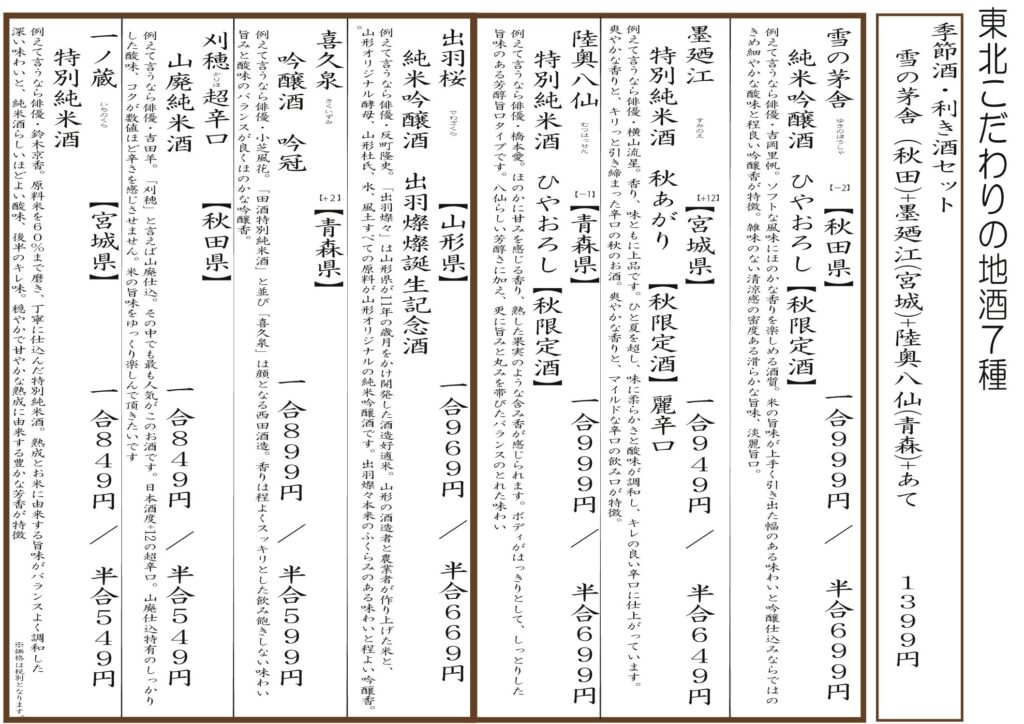 東北こだわりの地酒7種
季節酒・利き酒セット
雪の茅舎(秋田)+墨廼江(宮城)+陸奥八仙(青森)+あて 1399円
雪の茅舎 ゆきのぼうしゃ [−2]【秋田県】
純米吟醸酒 ひやおろし【秋限定酒】 一合999円/半合699円
例えて言うなら俳優・吉岡里帆。ソフトな風味にほのかな香りを楽しめる酒質。米の旨味が上手く引き出た幅のある味わいと吟醸仕込みならではの
きめ細やかな酸味と程良い吟醸香が特徴。雑味のない清涼感の密度ある滑らかな旨味、淡麗旨口。
墨廼江 すみのえ [+12]【宮城県】 一合949円/半合649円
特別純米酒 秋あがり【秋限定酒】麗辛口
例えて言うなら俳優・横山流星。香り、味ともに上品です。ひと夏を超し、味に柔らかさと酸味が調和し、キレの良い辛口に仕上がっています。
爽やかな香りと、キリっと引き締まった辛口の秋のお酒。爽やかな香りと、マイルドな辛口の飲み口が特徴。
陸奥八仙 むつはっせん [−1]【青森県】 一合999円/半合699円
特別純米酒 ひやおろし【秋限定酒】
例えて言うなら俳優・橋本愛。ほのかに甘みを感じる香り、熟した果実のような含み香が感じられます。ボディがはっきりとして、しっとりした
旨味のある芳醇旨口タイプです。八仙らしい芳醇さに加え、更に旨みと丸みを帯びたバランスのとれた味わい
出羽桜 でわざくら 【山形県】 一合969円/半合669円
純米吟醸酒 出羽燦燦誕生記念酒
例えて言うなら俳優・反町隆史。「出羽燦々」は山形県が11年の歳月をかけ開発した酒造好適米。山形の酒造者と農業者が作り上げた米と、
山形オリジナル酵母、山形杜氏、水、風土すべての原料が山形オリジナルの純米吟醸酒です。出羽燦々本来のふくらみのある味わいと程よい吟醸香。
喜久泉 きくいずみ [+2]【青森県】
吟醸酒 吟冠 一合899円/半合599円
例えて言うなら俳優・小芝風花。「田酒特別純米酒」と並び「喜久泉」は顔となる西田酒造。香りは程よくスッキリとした飲み飽きしない味わい
旨みと酸味のバランスが良くほのかな吟醸香。
刈穂 かりほ 超辛口 【秋田県】
山廃純米酒 一合849円/半合549円
例えて言うなら俳優・吉田羊。「刈穂」と言えば山廃仕込。その中でも最も人気がこのお酒です。日本酒度+12の超辛口。山廃仕込特有のしっかり
した酸味、コクが数値ほど辛さを感じさせません。米の旨味をゆっくり楽しんで頂きたいです
一ノ蔵 いちのくら 【宮城県】 一合849円/半合549円
特別純米酒
例えて言うなら俳優・鈴木京香。原料米を60%まで磨き、丁寧に仕込んだ特別純米酒。熟成とお米に由来する旨味がバランスよく調和した
深い味わいと、純米酒らしいほどよい酸味、後半のキレ味。穏やかで甘やかな熟成に由来する豊かな芳香が特徴
※価格は税別となります。